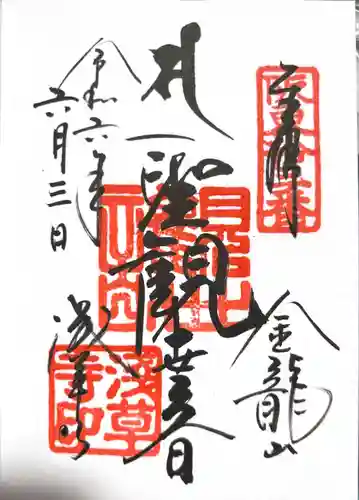 奉拝
金龍山
聖観世音
浅草寺
令和六年
六月三日
浅草寺印